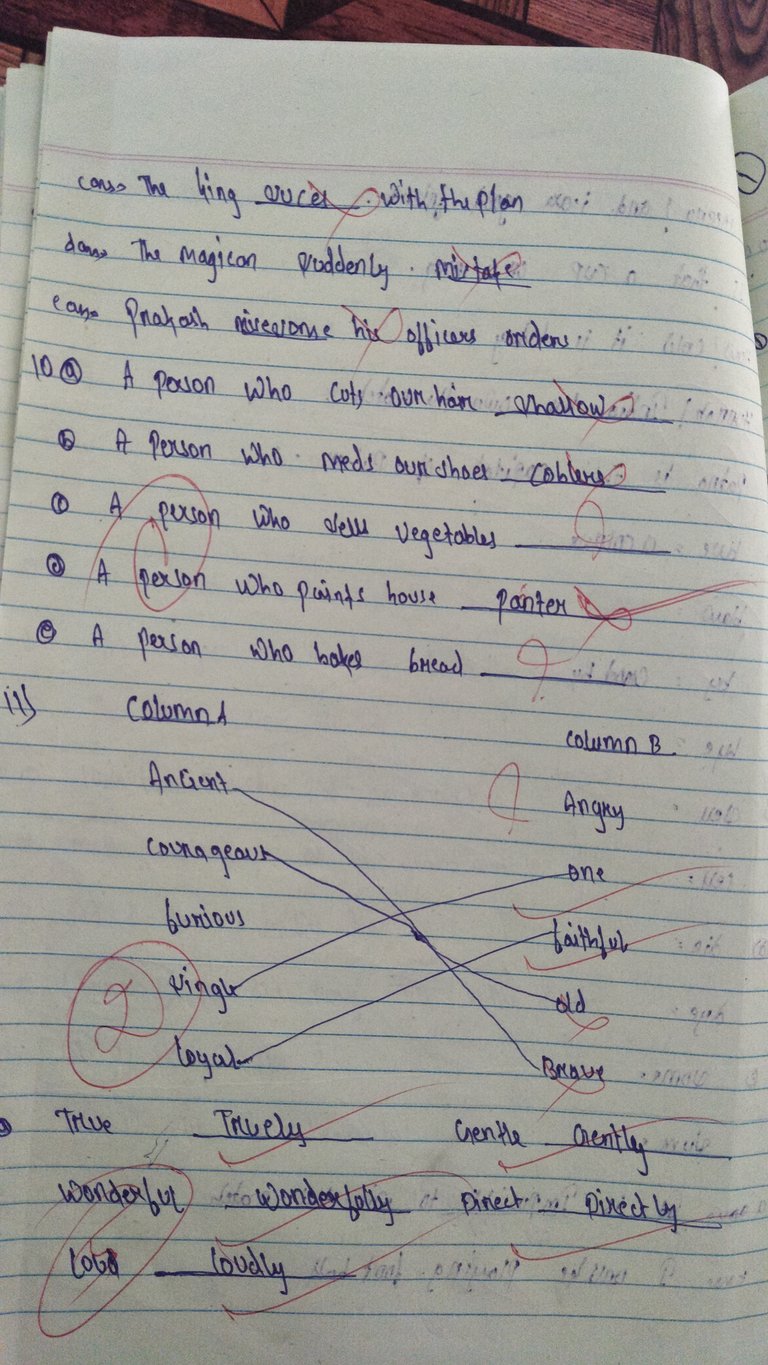 cans The king with the plan
dans The magican suddenly . mistake
eans Prakash his officers orders
10 a A person who cuts our hair shallow
b A person who meds our shoes coblers
c A person who sells vegetables
d A person who paints house panter
e A person who bakes bread
11) Column A Column B
Ancient Angry
courageous one
furious faithful
single old
loyal Brave
2
True Truely Gentle Gently
wonderful wonderfully Direct Directly
Loudly